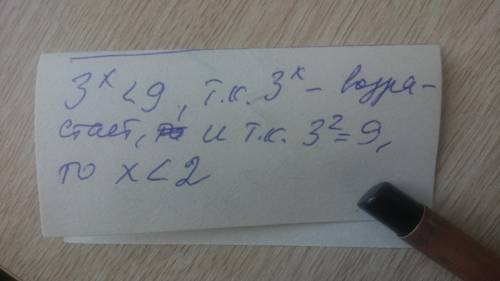 3^x < 9, т.к. 3^x - возра-
стает, и т.к. 3² = 9,
то x < 2